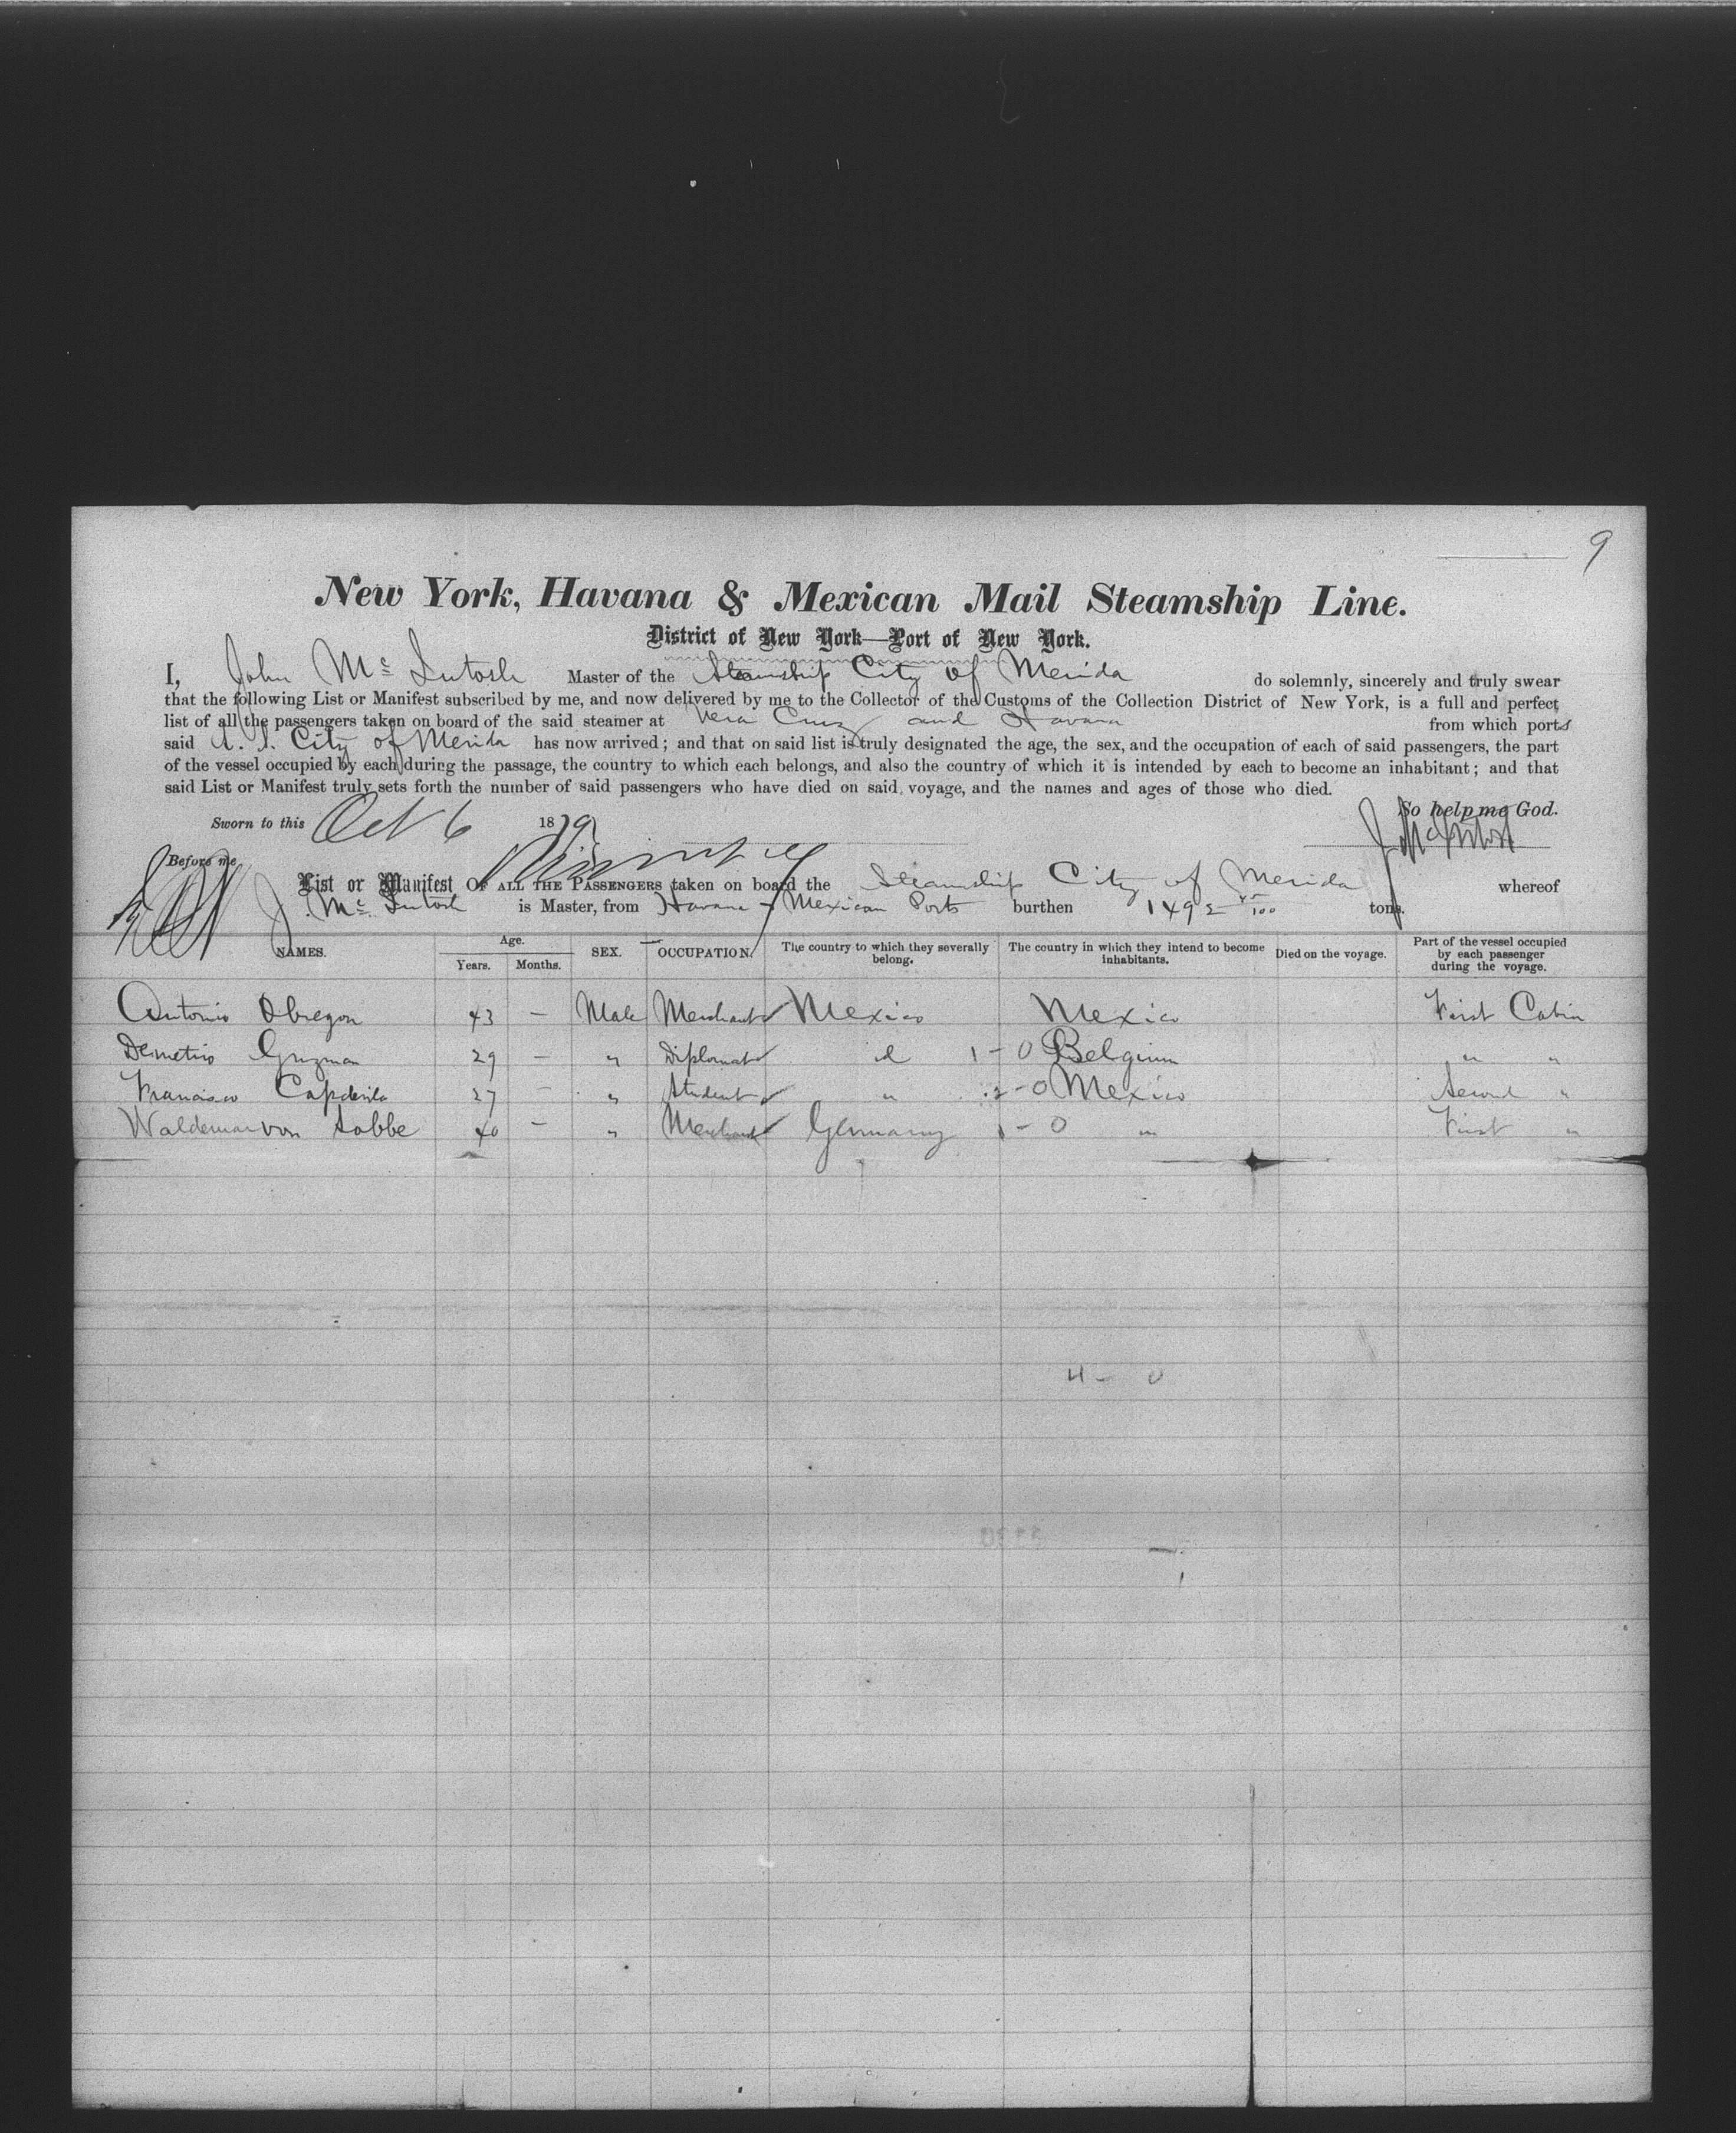 9
New York, Havana & Mexican Mail Steamship Line.
District of New York—Port of New York.
I, John Mc Intosh Master of the Steamship City of Merida do solemnly, sincerely and truly swear
that the following List or Manifest subscribed by me, and now delivered by me to the Collector of the Customs of the Collection District of New York, is a full and perfect
list of all the passengers taken on board of the said steamer at Vera Cruz and Havana from which ports
said S. S. City of Merida has now arrived; and that on said list is truly designated the age, the sex, and the occupation of each of said passengers, the part
of the vessel occupied by each during the passage, the country to which each belongs, and also the country of which it is intended by each to become an inhabitant; and that
said List or Manifest truly sets forth the number of said passengers who have died on said voyage, and the names and ages of those who died.
So help me God.
Sworn to this Oct 6 1879 J McIntosh
Before me
List or Manifest OF ALL THE PASSENGERS taken on board the Steamship City of Merida whereof
J. Mc Intosh is Master, from Havana & Mexican Ports burthen 1492 tons.
NAMES. Age. Years. Months. SEX. OCCUPATION. The country to which they severally belong. The country in which they intend to become inhabitants. Died on the voyage. Part of the vessel occupied by each passenger during the voyage.
Antonio Obregon 43 — Male Merchant Mexico Mexico First Cabin
Demetrio Guzman 29 — " Diplomat id 1-0 Belgium " "
Francisco Capdevila 27 — " Student " 2-0 Mexico Second "
Waldemar von Sobbe 40 — " Merchant Germany 1-0 " First "
4 - 0